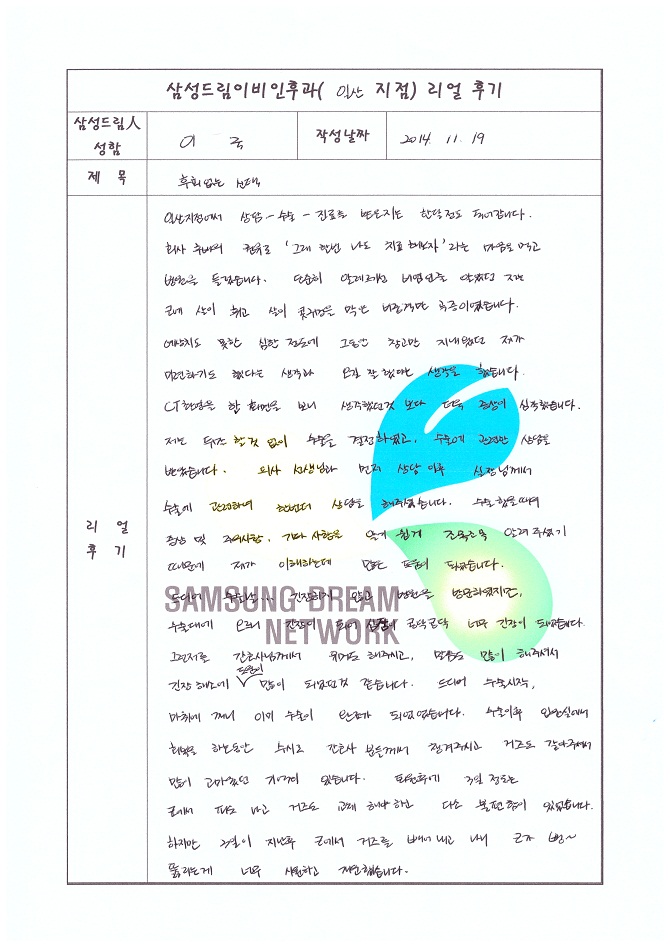 삼성드림이비인후과( 익산 지점) 리얼 후기
삼성드림人 성함
이 국
작성날짜
2014. 11. 19
제 목
후회없는 선택
리 얼 후 기
익산지점에서 상담-수술-진료를 받은지는 한달정도 되어갑니다.
회사 후배의 권유로 '그래 한번 나도 치료 해보자' 라는 마음을 먹고
병원을 들렸습니다. 단순히 알레르기성 비염인줄 알았던 저는
코에 살이 휘고 살이 콧구멍을 막는 비중격만곡증이었습니다.
예상치도 못한 심한 정도에 그동안 참고만 지내왔던 제가
미련하기도 했다는 생각과 오길 잘 했다는 생각을 했습니다.
CT촬영을 한 화면을 보니 생각했던것 보다 더욱 증상이 심각했습니다.
저는 두말 할것 없이 수술을 결정하였고, 수술에 관련한 상담을
받았습니다. 의사 선생님과 먼저 상담 이후 실장님께서
수술에 관련하여 한번더 상담을 해주셨습니다. 수술 함으로써
증상 및 주의사항, 기타 사항을 알기 쉽게 조목조목 알려 주셨기
때문에 제가 이해하는데 많은 도움이 되었습니다.
드디어 수술날... 긴장하지 않고 병원을 방문하였지만,
수술대에 오르니 긴장이 되어 심장이 콩닥콩닥 너무 긴장이 되었습니다.
그런저를 간호사님께서 위로도 해주시고, 말씀도 많이 해주셔서
긴장 해소에 도움이 많이 되었던것 같습니다. 드디어 수술시작,
마취에 깨니 이미 수술이 완료가 되었었습니다. 수술이후 입원실에서
회복을 하는동안 수시로 간호사 분들께서 챙겨주시고 거즈도 갈아주셔서
많이 고마웠던 기억이 있습니다. 퇴원후에 3일 정도는
코에서 피도 나고 거즈도 교체 해야 하고 다소 불편함이 있었습니다.
하지만 2주일이 지난후 코에서 거즈를 빼어 내고 나니 코가 뻥~
뚫리는게 너무 시원하고 개운했습니다.
SAMSUNG DREAM
NETWORK